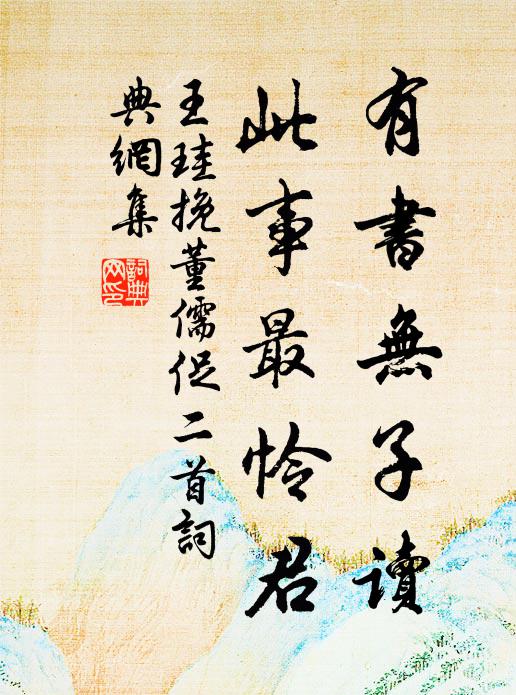 有書無子讀
此事最怜君
王珪挽董儒促二首詞
典網集
詞典
网印